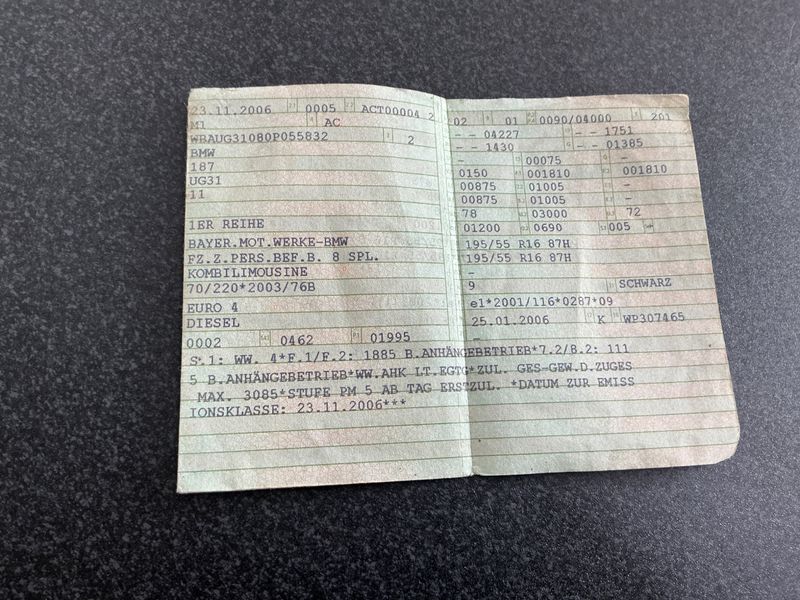 23.11.2006 0005 ACT00004 2
M1 AC
WBAUG31080P055832 2
BMW
187
UG31
11
1ER REIHE
BAYER.MOT.WERKE-BMW
FZ.Z.PERS.BEF.B. 8 SPL.
KOMBILIMOUSINE
70/220*2003/76B
EURO 4
DIESEL
0002 0462 01995
02 01 0090/04000 201
- - 04227 - - 1751
- - 1430 - - 01385
- 00075 -
0150 001810 001810
00875 01005 -
00875 01005 -
78 03000 72
01200 0690 005
195/55 R16 87H
195/55 R16 87H
-
9 SCHWARZ
e1*2001/116*0287*09
25.01.2006 K WP307465
-
S.1: WW. 4*F.1/F.2: 1885 B.ANHÄNGEBETRIEB*7.2/8.2: 111
5 B.ANHÄNGEBETRIEB*WW.AHK LT.EGTG*ZUL. GES-GEW.D.ZUGES
MAX. 3085*STUFE PM 5 AB TAG ERSTZUL. *DATUM ZUR EMISS
IONSKLASSE: 23.11.2006***